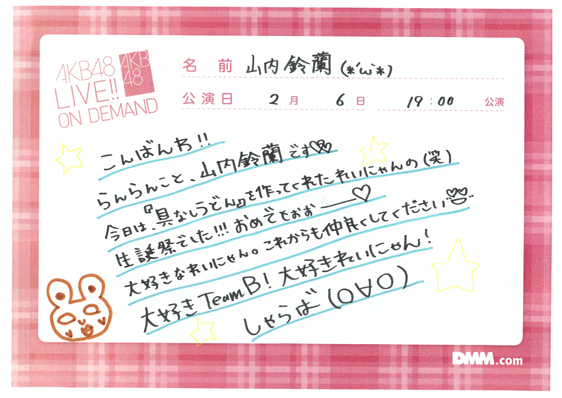 AKB48
LIVE!!
ON DEMAND
AKB
48
名 前 山内鈴蘭(*'ω'*)
公演日 2月 6日 19:00 公演
こんばんわ!!
らんらんこと、山内鈴蘭です♡
今日は、『具なしうどん』を作ってくれたれいにゃんの(笑)
生誕祭でした!!! おめでとぉぉ――♡
大好きなれいにゃん。これからも仲良くしてください
大好きTeamB! 大好きれいにゃん!
しゃらば(O∀O)
DMM.com